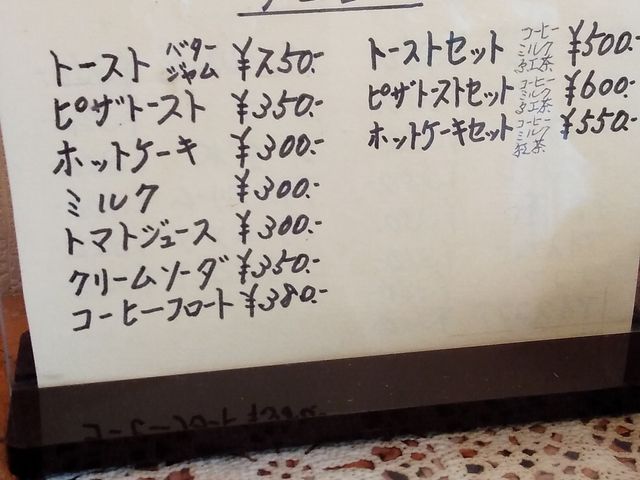 トースト バター ジャム ¥250.-
ピザトースト ¥350.-
ホットケーキ ¥300.-
ミルク ¥300.-
トマトジュース ¥300.-
クリームソーダ ¥350.-
コーヒーフロート ¥380.-
トーストセット コーヒー ミルク 紅茶 ¥500.-
ピザトーストセット コーヒー ミルク 紅茶 ¥600.-
ホットケーキセット コーヒー ミルク 紅茶 ¥550.-